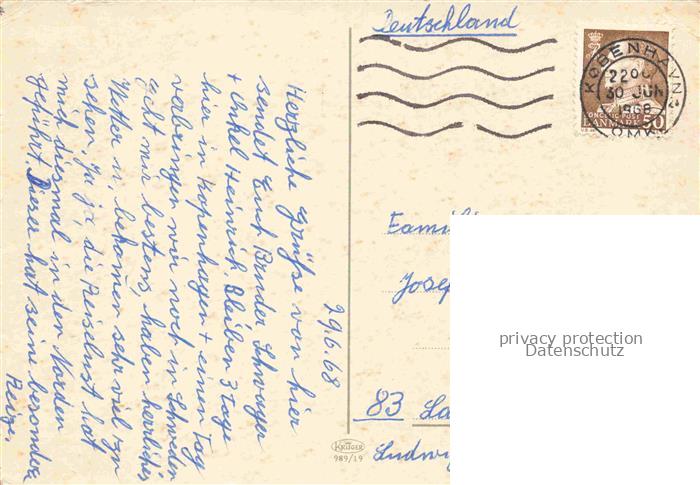 Deutschland
KØBENHAVN
2200
30 JUN
1968
OMK
KONGELIG POST
DANMARK 50
29.6.68
Herzliche Grüße von hier
sendet Euch Bruder, Schwager
+ Onkel Heinrich. Bleiben 3 Tage
hier in Kopenhagen + einen Tag
verbringen wir noch in Schweden
Geht mir bestens, haben herrliches
Wetter u. bekamen sehr viel zu
sehen. Ja ja, die Reiselust hat
mich diesmal in den Norden
geführt. Dieser hat seine besonderen
Reize.
Famili
Josef
83 La
Ludwi
KRÜGER
989/19
privacy protection
Datenschutz